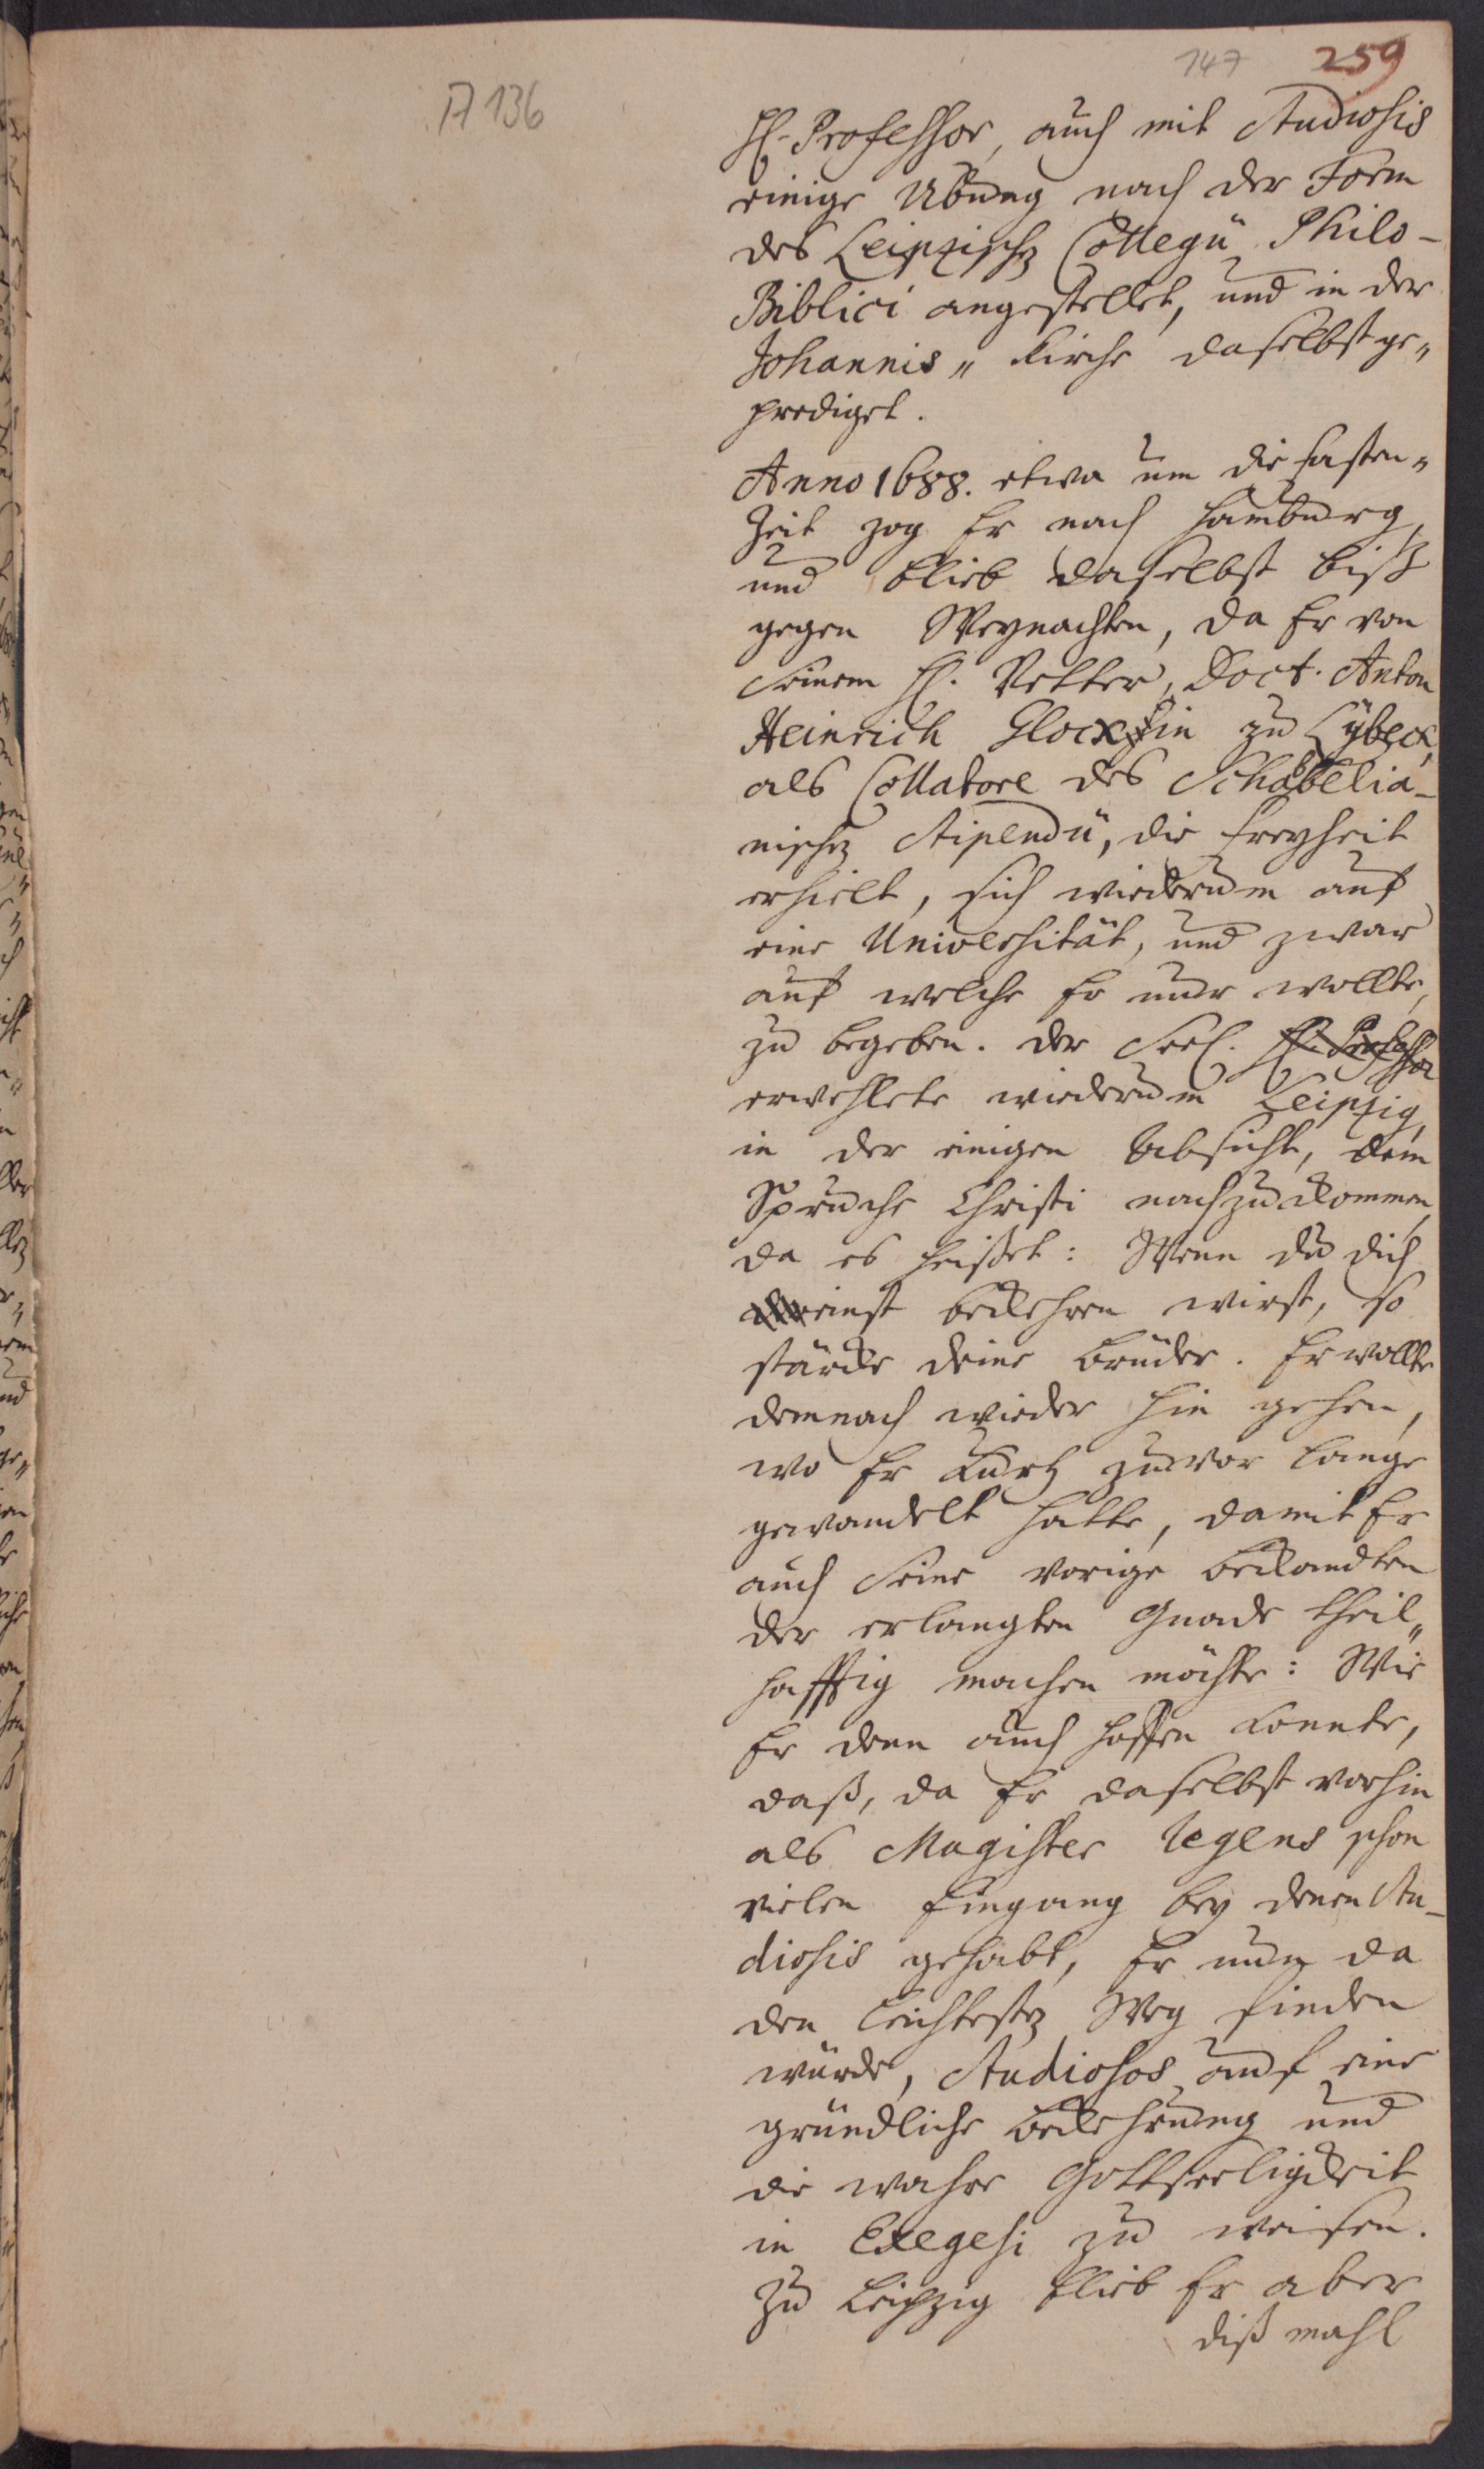 147 259
A 136
H. Professor, auch mit Studiosis
einige Ubung nach der Form
des Leipzischen Collegii Philo-
Biblici angestellet, und in der
Johannis„ Kirche daselbst ge„
prediget.
Anno 1688. etwa um die Fasten„
Zeit zog Er nach Hamburg,
und blieb daselbst biß
gegen Weynachten, da Er von
Seinem H. Vetter, Doct. Anton
Heinrich Gloxin zu Lübeck,
als Collatore des Schabbelia-
nischen Stipendii, die Freyheit
erhielt, sich wiederum auf
eine Universität, und zwar
auf welche Er nur wollte,
zu begeben. Der Seel. H. Professor
erwehlete wiederum Leipzig,
in der einigen Absicht, dem
Spruche Christi nachzukommen,
da es heißet: Wenn du dich
einst bekehren wirst, so
stärcke deine Brüder. Er wollte
demnach wieder hin gehen,
wo Er kurtz zuvor lange
gewandelt hatte, damit Er
auch Seine vorige Bekandten
der erlangten Gnade theil„
hafftig machen möchte: Wie
Er denn auch hoffen konnte,
daß, da Er daselbst vorhin
als Magister legens schon
vielen Eingang bey denen Stu-
diosis gehabt, Er nun da
den leichtesten Weg finden
würde, Studiosos auf eine
gründliche Bekehrung und
die wahre Gottseeligkeit
in Exegesi zu weisen.
Zu Leipzig blieb Er aber
diß mahl